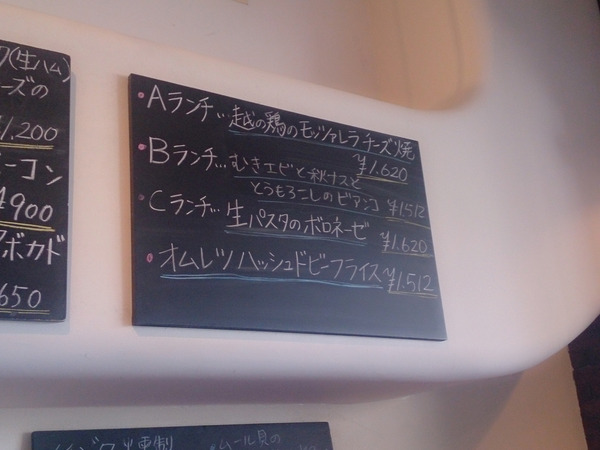 (生ハム)
ーズの
1,200
ーコン
¥900
ボカド
650
・Aランチ…越の鶏のモッツァレラチーズ焼
¥1.620
・Bランチ…むきエビと秋ナスと
とうもろこしのビアンコ ¥1512
・Cランチ…生パスタのボロネーゼ
¥1.620
・オムレツハッシュドビーフライス
¥1.512
・ムール貝の